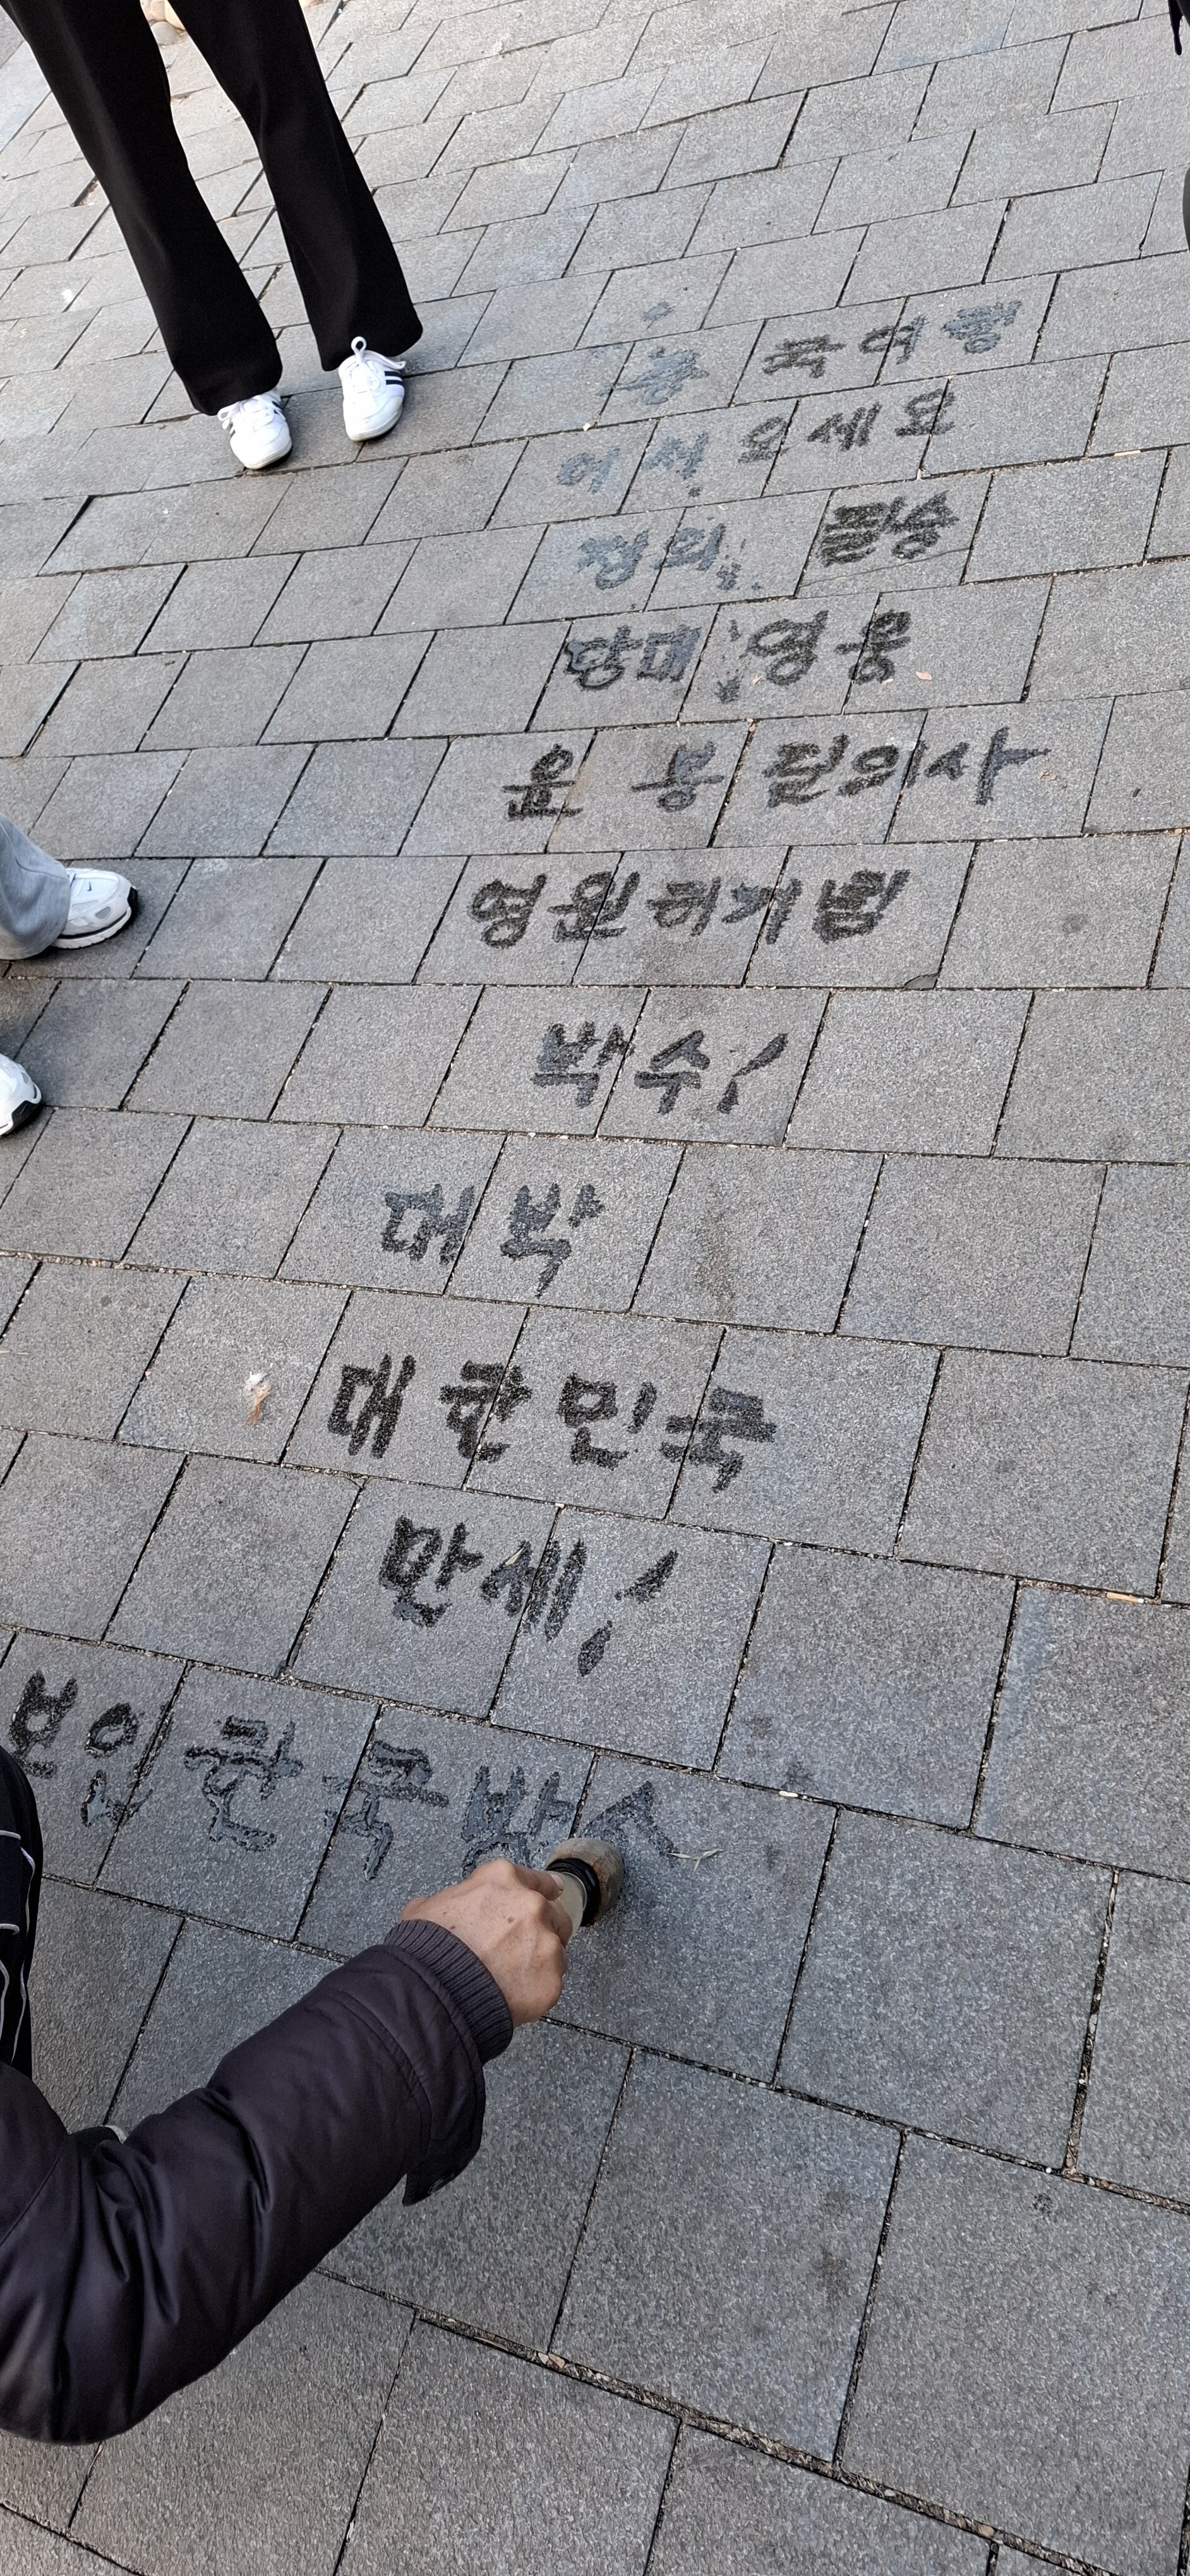 중국여행
어서 오세요
정의 필승
당대 영웅
윤 봉 길의사
영원히기념
박수!
대박
대한민국
만세!
한국방